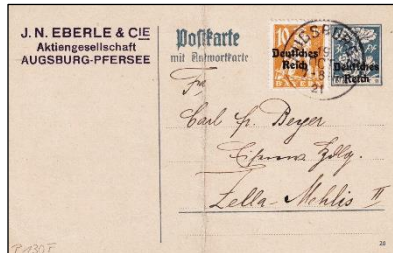 J. N. EBERLE & CIE
Aktiengesellschaft
AUGSBURG-PFERSEE
Postkarte
mit Antwortkarte
10
Deutsches
Reich
BAYERN
Deutsches
Reich
AUGSBURG
21
Carl Fr. Beyer
Zella-Mehlis II
P 130 F
20